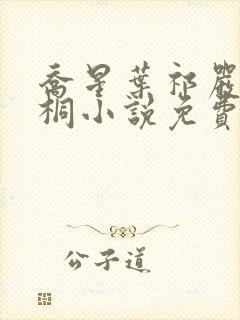 喬星葉祁嚴
桐小說免費
公子道